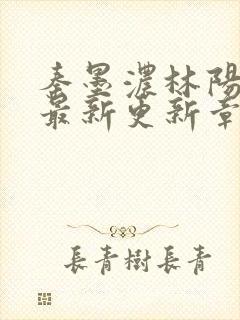 秦墨濃林陽
最新更新章
長青樹長青